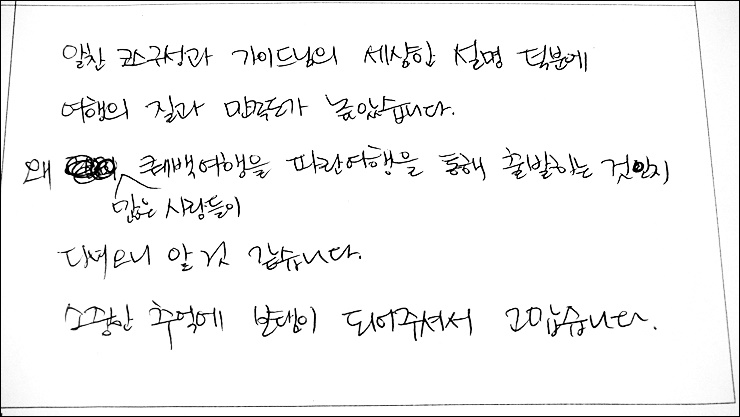 알찬 코스구성과 가이드님의 세상한 설명 덕분에
여행의 질과 만족도가 높았습니다.
왜 퀘백여행을 파란여행을 통해 출발하는 것인지
많은 사람들이
다녀오니 알 것 같습니다.
소중한 추억에 보탬이 되어주셔서 고맙습니다.